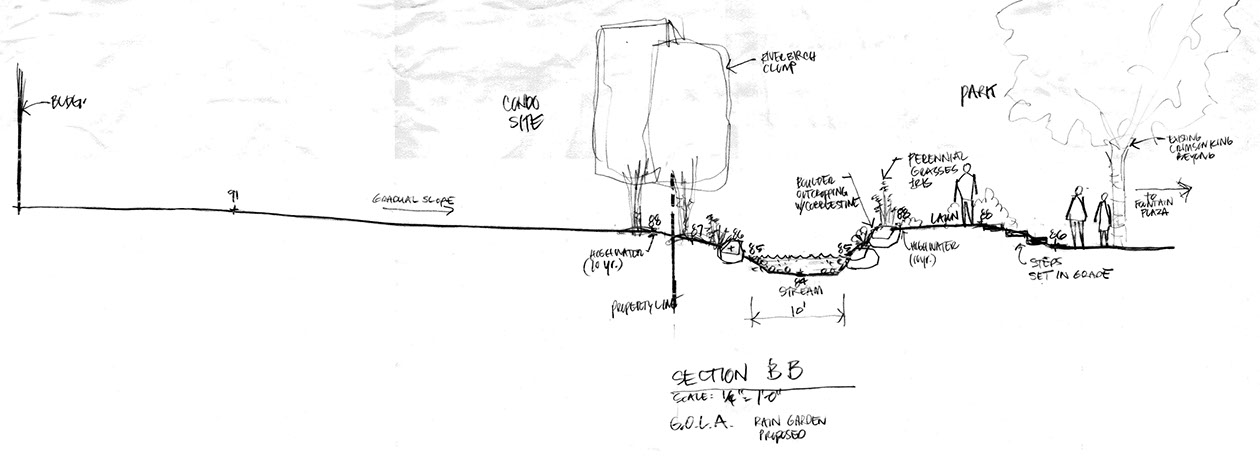 BLDG.
CONDO
SITE
RIVER BIRCH
CLUMP
PARK
EXISTING
CRIMSON KING
BEYOND
PERENNIAL
GRASSES
IRIS
BOULDER
OUTCROPPING
W/ COBBLESTONE
TO
FOUNTAIN
PLAZA
91
GRADUAL SLOPE
88
87
86
85
85
88
LAWN
88
86
HIGHWATER
(10 YR.)
HIGHWATER
(10 YR.)
STEPS
SET IN GRADE
84
STREAM
PROPERTY LINE
10'
SECTION BB
SCALE: 1/4" = 1'0"
G.O.L.A.
RAIN GARDEN
PROPOSED